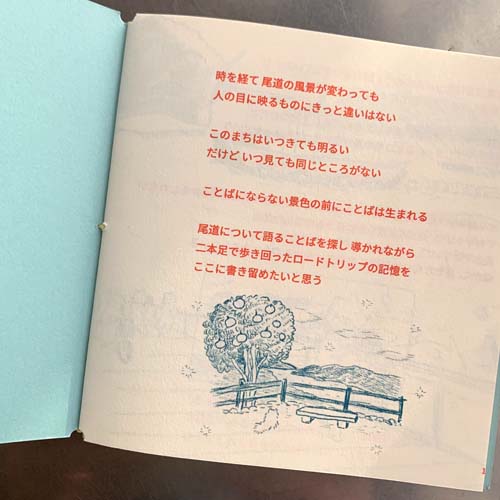 時を経て 尾道の風景が変わっても
人の目に映るものにきっと違いはない
このまちはいつきても明るい
だけど いつ見ても同じところがない
ことばにならない景色の前にことばは生まれる
尾道について語ることばを探し 導かれながら
二本足で歩き回ったロードトリップの記憶を
ここに書き留めたいと思う
1